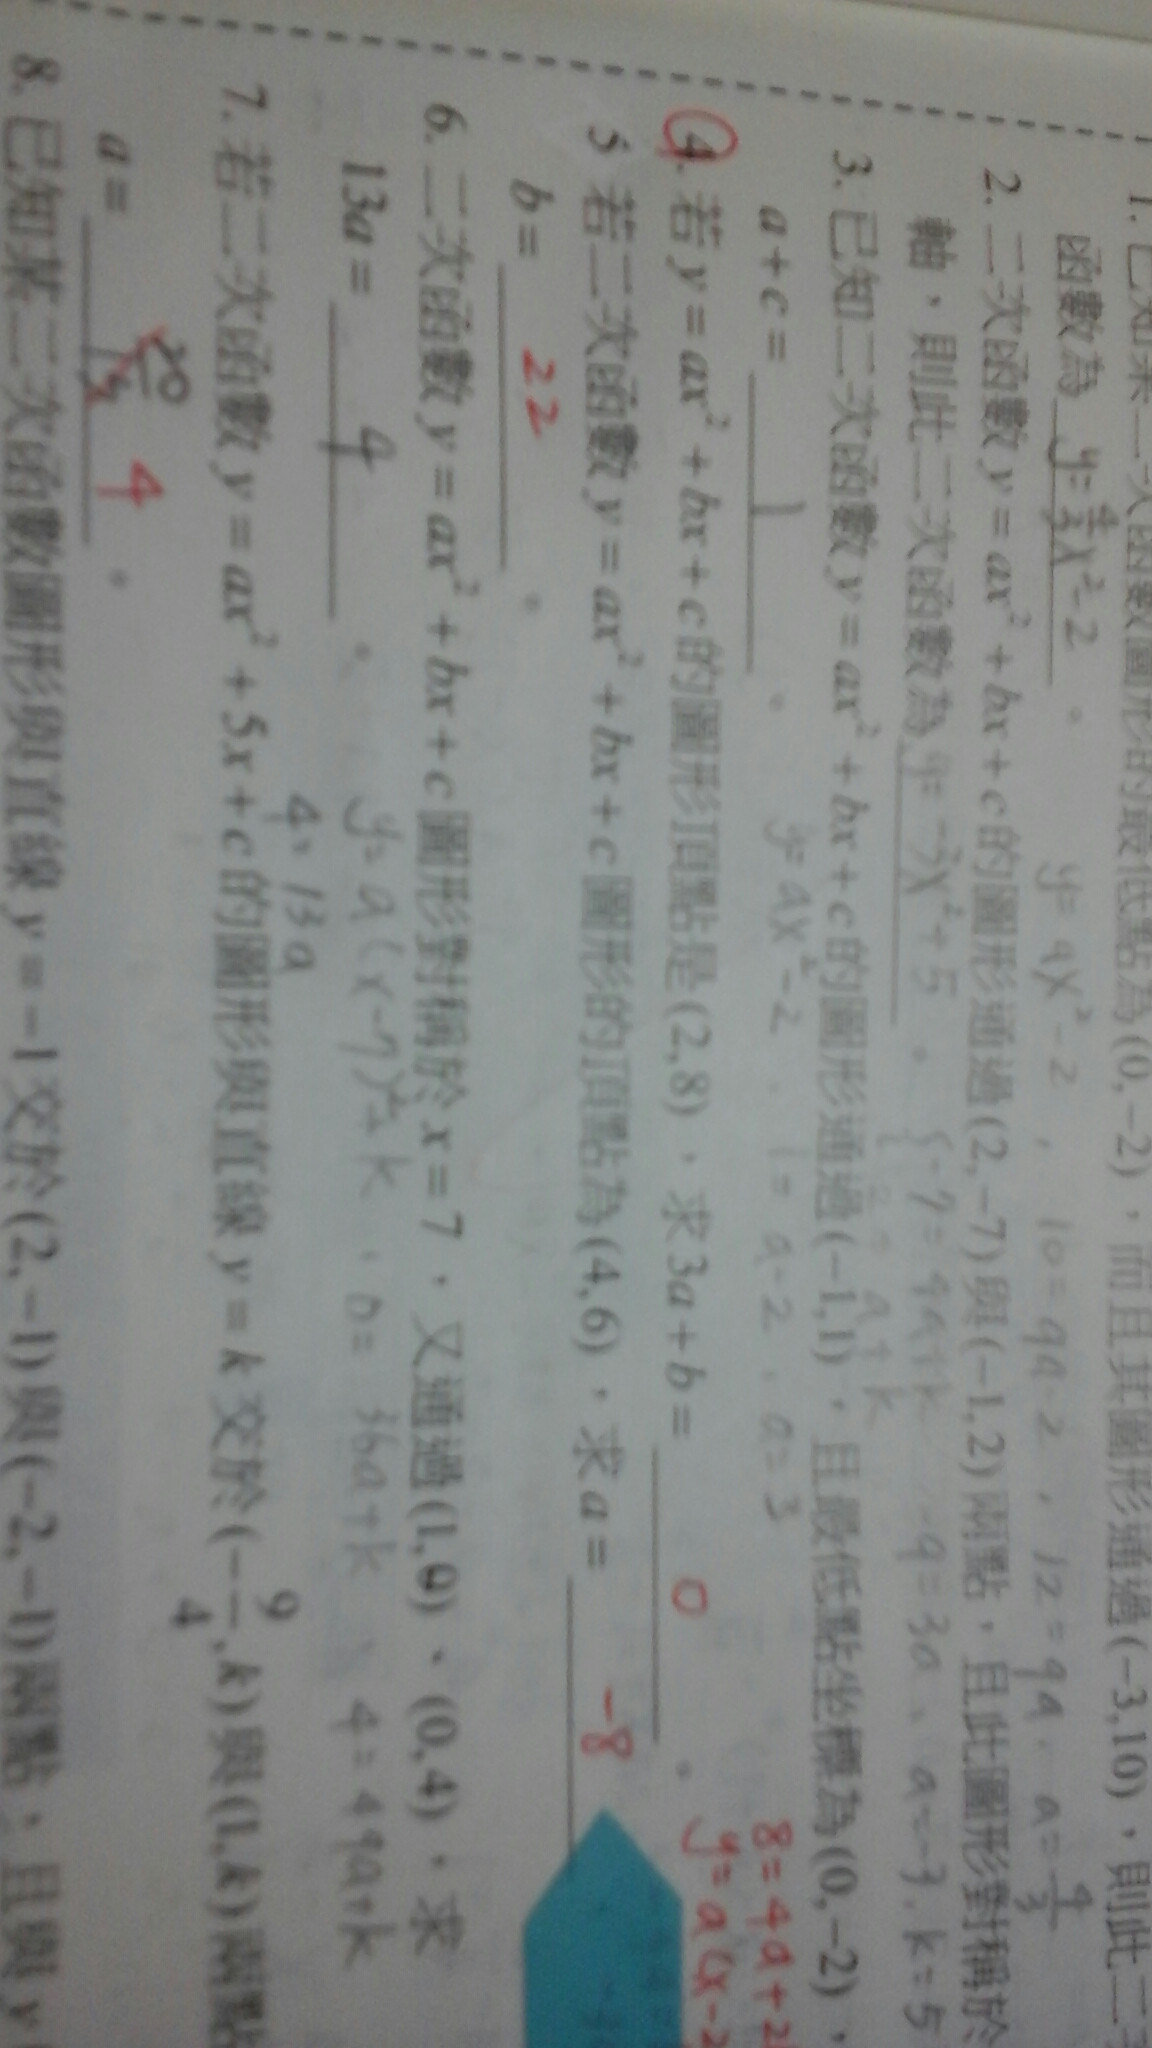 1. 已知某二次函數圖形的最低點為(0,−2)，而且其圖形通過(−3,10)，則此二
函數為 y=4/3x²-2 。 y=ax²-2 , 10=9a-2 , 12=9a. a=4/3
2. 二次函數 y=ax²+bx+c 的圖形通過(2,−7)與(−1,2)兩點，且此圖形對稱於
軸，則此二次函數為 y=-3x²+5 . -7=4a+k -9=3a、a=-3.k=5
a+k
3. 已知二次函數 y=ax²+bx+c 的圖形通過(−1,1)，且最低點坐標為(0,−2)，
a+c= 1 。 y=ax²-2 . 1=a-2、a=3
4. 若 y=ax²+bx+c 的圖形頂點是(2,8)，求 3a+b= 0 。 8=4a+2
y=a(x-2
5 若二次函數 y=ax²+bx+c 圖形的頂點為(4,6)，求 a= -8
b= 22 。
6. 二次函數 y=ax²+bx+c 圖形對稱於 x=7，又通過(1,0)、(0,4)，求
13a= 4 。 y=a(x-7)²+k , 0=36a+k 、4=49a+k
4=13a
7. 若二次函數 y=ax²+5x+c 的圖形與直線 y=k 交於(−9/4,k)與(1,k)兩點
a= 4 。
8. 已知某二次函數圖形與直線 y=−1 交於(2,−1)與(−2,−1)兩點，且與 y